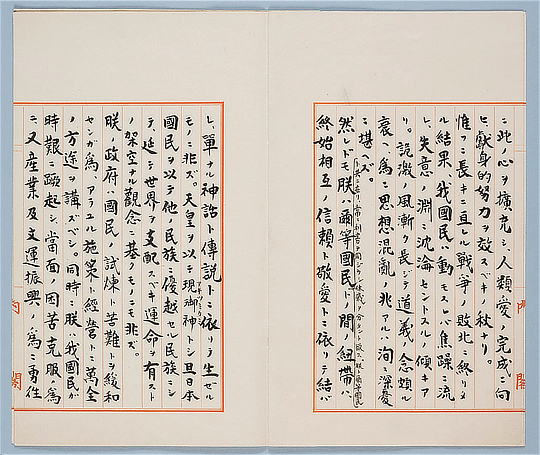 ニ此ノ心ヲ擴充シ、人類愛ノ完成ニ向
ヒ、獻身的努力ヲ效スベキノ秋ナリ。
惟フニ長キニ亘レル戰爭ノ敗北ニ終リタ
ル結果、我國民ハ動モスレバ焦躁ニ流
レ、失意ノ淵ニ沈淪セントスルノ傾キア
リ。詭激ノ風漸ク長ジテ道義ノ念頗ル
衰ヘ、爲ニ思想混亂ノ兆アルハ洵ニ深憂
ニ堪ヘズ。
然レドモ朕ハ爾等國民ト共ニ在リ、常ニ利害ヲ同ジウシ休戚ヲ分タント欲ス。朕ト爾等國民
トノ間ノ紐帶ハ、
終始相互ノ信賴ト敬愛トニ依リテ結バ
レ、單ナル神話ト傳說トニ依リテ生ゼル
モノニ非ズ。天皇ヲ以テ現御神トシ且日本
アキツミカミ
國民ヲ以テ他ノ民族ニ優越セル民族ニシ
テ、延テ世界ヲ支配スベキ運命ヲ有スト
ノ架空ナル觀念ニ基クモノニモ非ズ。
朕ノ政府ハ國民ノ試煉ト苦難トヲ緩和
センガ爲、アラユル施策ト經營トニ萬全
ノ方途ヲ講ズベシ。同時ニ朕ハ我國民ガ
時艱ニ蹶起シ、當面ノ困苦克服ノ爲
ニ、又産業及文運振興ノ爲ニ勇往
內閣
內閣